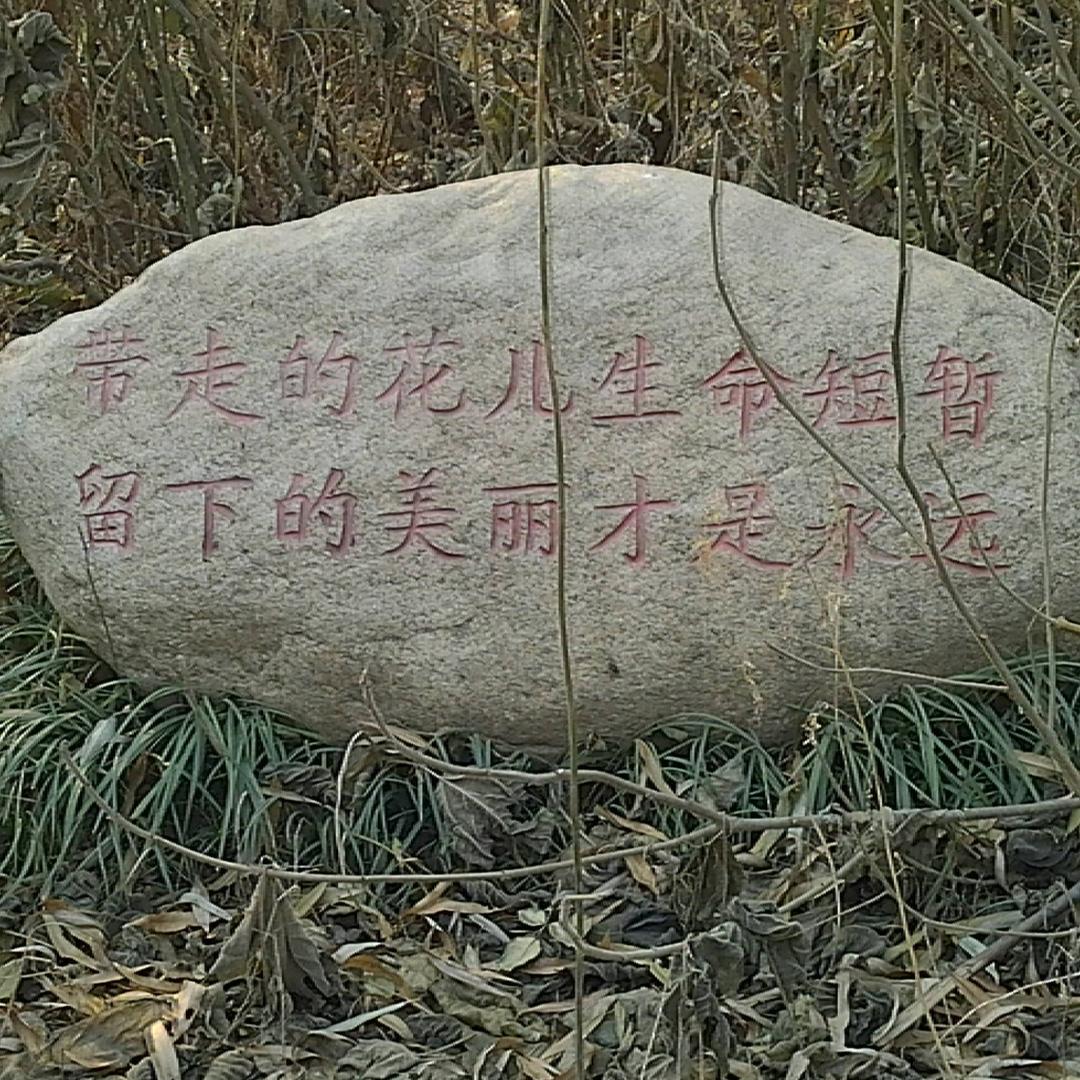 带走的花儿生命短暂
留下的美丽才是永远